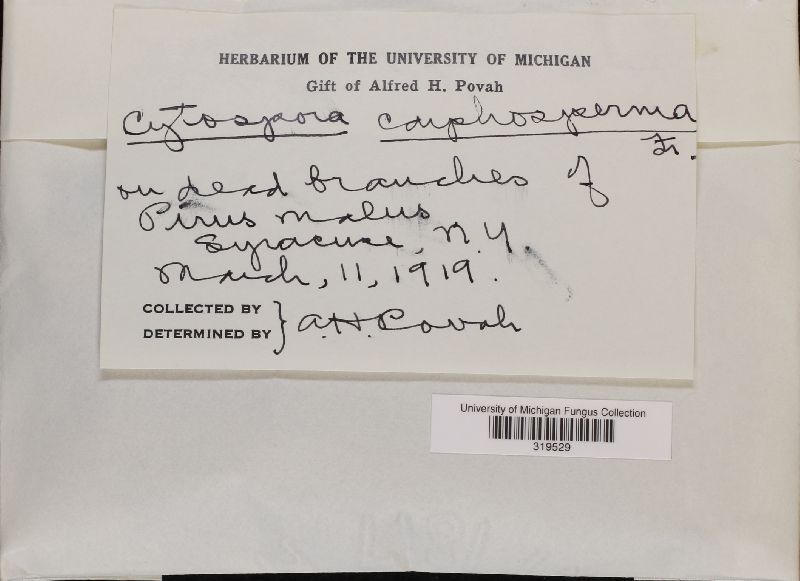 HERBARIUM OF THE UNIVERSITY OF MICHIGAN
Gift of Alfred H. Povah
Cytospora carphosperma
Fr.
on dead branches of
Pirus malus
Syracuse, N.Y.
March, 11, 1919.
COLLECTED BY
DETERMINED BY } A.H. Povah
University of Michigan Fungus Collection
319529